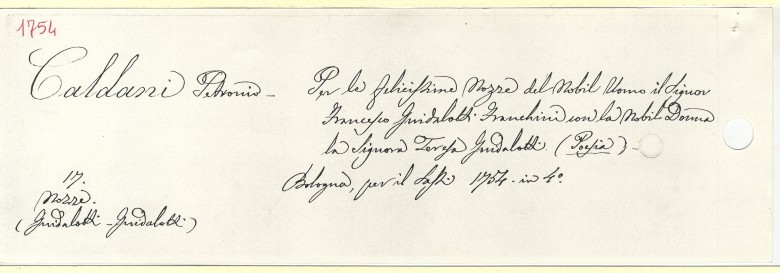 1754
Caldani Petronio -
Per le felicissime Nozze del Nobil Uomo il Signor
Francesco Guidalotti Franchini con la Nobil Donna
la Signora Teresa Guidalotti (Poesia) -
Bologna, per il Sassi 1754. in 4°.
17.
Nozze.
(Guidalotti - Guidalotti)